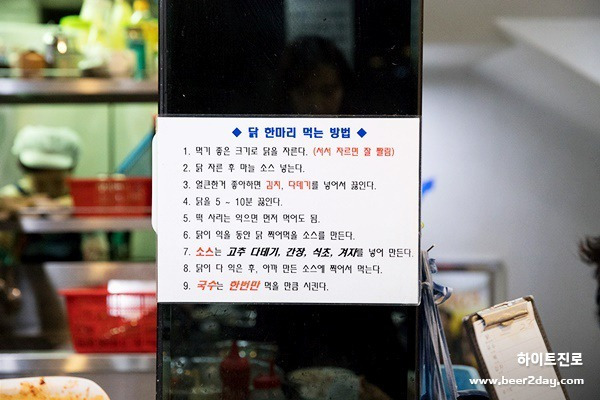 ◆ 닭 한마리 먹는 방법 ◆
1. 먹기 좋은 크기로 닭을 자른다. (서서 자르면 잘 짤림)
2. 닭 자른 후 마늘 소스 넣는다.
3. 얼큰한거 좋아하면 김치, 다데기를 넣어서 끓인다.
4. 닭을 5 ~ 10분 끓인다.
5. 떡 사리는 익으면 먼저 먹어도 됨.
6. 닭이 익을 동안 닭 찍어먹을 소스를 만든다.
7. 소스는 고추 다데기, 간장, 식초, 겨자를 넣어 만든다.
8. 닭이 다 익은 후, 아까 만든 소스에 찍어서 먹는다.
9. 국수는 한번만 먹을 만큼 시킨다.
하이트진로
www.beer2day.com